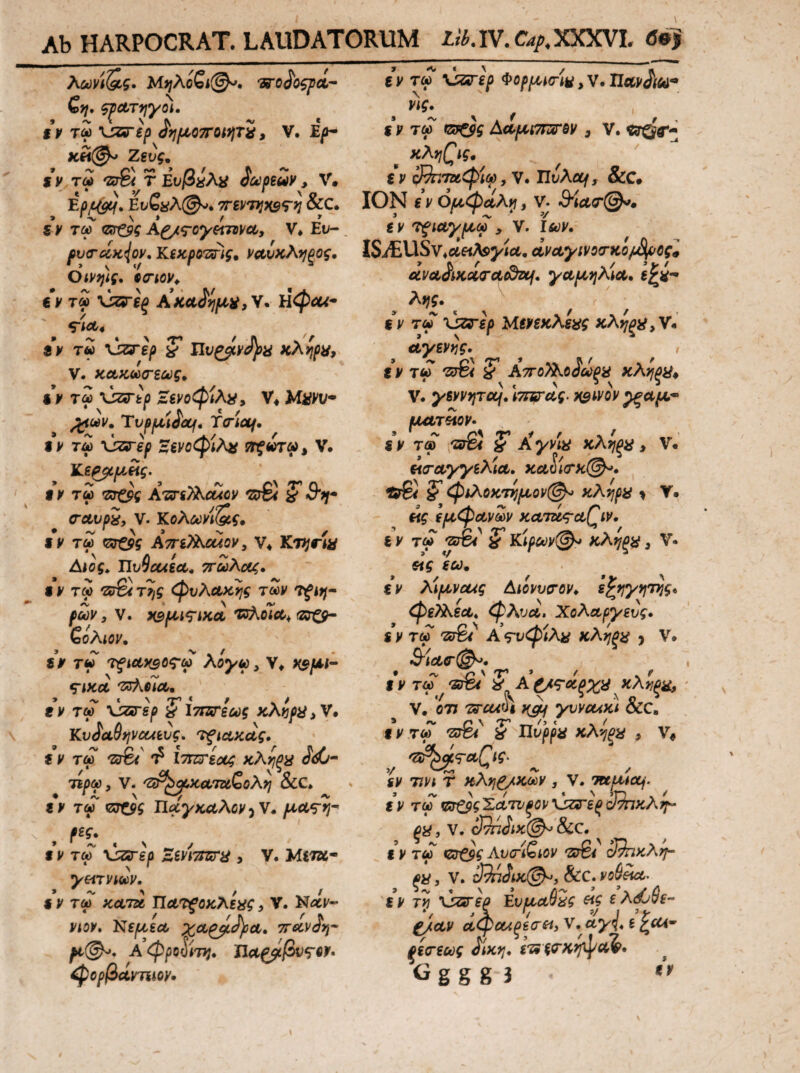 Ab HARPOCRAT. LAUDATORUM Lib. IV. Cap. XXXVI. 605
λωνίζας. Μηλόβιος. ποδοςρά-
βη. ςρατηγοί.
ἐν τῷ ὑπὲρ δημοποιήτȣ, V. Ερ-
κεῖος Ζεύς.
ἐν τῷ περὶ τ Ευβȣ́λȣ δωρεῶν, V.
Ἑρμαῖ. Εὔβȣλος. πεντηκοςὴ &c.
ἐν τῷ πρὸς Αριςογείτονα, V. Ευ-
ρυσάκειον. Κεκροπίς. ναύκληρος.
Οινηίς. ὅσιον.
ἐν τῷ ὑπὲρ Ακαδήμȣ, V. Ηφαι-
ςία.
ἐν τῷ ὑπὲρ τȣ͂ Πυράνδρȣ κλήρȣ,
V. κακώσεως.
ἐν τῷ ὑπὲρ Ξενοφίλȣ, V. Μȣνυ-
χιών. Τυρμίδαι. Υσίαι.
ἐν τῷ ὑπὲρ Ξενοφίλȣ πρώτῳ, V.
Κεραμεῖς.
ἐν τῷ πρὸς Απελλαῖον περὶ τȣ͂ θη-
σαυρȣ͂, V. Κολωνίζας.
ἐν τῷ πρὸς Απελλαῖον, V. Κτησίȣ
Διός. Πυθαιέα. πώλας.
ἐν τῷ περὶ τῆς φυλακῆς τῶν τριη-
ρῶν, V. κερμιςικὰ πλοῖα. προ-
βόλιον.
ἐν τῷ τριακοςῷ λόγῳ, V. κερμι-
ςικὰ πλοῖα.
ἐν τῷ ὑπὲρ τȣ͂ Ιππέως κλήρȣ, V.
Κυδαθηναιεύς. τριακάς.
ἐν τῷ περὶ τ̂ ἱππέας κλήρȣ δευ-
τέρῳ, V. παρακαταβολὴ &c.
ἐν τῷ πρὸς Πάγκαλον, V. μαςῆ-
ρες.
ἐν τῷ ὑπὲρ Ξενίππȣ, V. Μετα-
γειτνιών.
ἐν τῷ κατὰ Πατροκλέȣς, V. Νάν-
νιον. Νεμέα χαράδρα. πάνδη-
μος. Αφροδίτη. Παράβυςον.
φορβάντειον.
ἐν τῷ ὑπὲρ Φορμισίȣ, V. Πανδιο-
νίς.
ἐν τῷ πρὸς Δάμιππον, V. προσ-
κλήζις.
ἐν ἐπιταφίῳ, V. Πύλαι, &c.
ION ἐν Ομφάλῃ, V. θίασος.
ἐν τριαγμῷ, V. Ιων.
ISÆUS V. αειλογία. ἀναγινοσκόμενος.
ἀναδικάσαθαι. γαμηλία. ἐξȣ́-
λης.
ἐν τῷ ὑπὲρ Μενεκλέȣς κλήρȣ, V.
ἀγενής.
ἐν τῷ περὶ τȣ͂ Απολλοδώρȣ κλήρȣ.
V. γεννηταί. ἱππάς. κοινὸν γραμ-
ματεῖον.
ἐν τῷ περὶ τȣ͂ Αγνίȣ κλήρȣ, V.
εἰσαγγελία. καδίσκος.
περὶ τȣ͂ φιλοκτήμονος κλήρȣ, V.
εἰς ἐμφανῶν κατάςαζιν.
ἐν τῷ περὶ τȣ͂ Κίρωνος κλήρȣ, V.
εἰς ἕω.
ἐν λίμναις Διόνυσον. ἐξηγητής.
φελλέα. φλυά. Χολαργεύς.
ἐν τῷ περὶ Αςυφίλȣ κλήρȣ, V.
θίασος.
ἐν τῷ περὶ τȣ͂ Αριςάρχȣ κλήρȣ,
V. ὅτι παιδὶ καὶ γυναικὶ &c.
ἐν τῷ περὶ τȣ͂ Πύρρȣ κλήρȣ, V.
παράςαζις.
ἐν τινι τ κληρικῶν, V. ταμίαι.
ἐν τῷ πρὸς Σάτυρον ὑπὲρ ἐπικλή-
ρȣ, V. ἐπίδικος &c.
ἐν τῷ πρὸς Λυσίβιον περὶ ἐπικλή-
ρȣ, V. ἐπίδικος, &c. νοθεῖα.
ἐν τῇ ὑπὲρ Ευμάθȣς εἰς ἐλευθε-
ρίαν ἀφαιρέσει, V. ἄγει. ἐξαι-
ρέσεως δίκη. ἐπεσκήψατο.
Gggg 3
ἐν